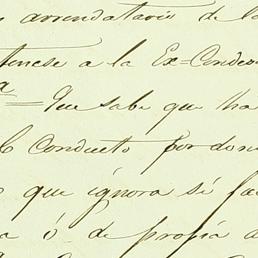 arrendatario de la
tenese a la Ex-Conde
a = Que sabe que ha
Conducto por don
que ignora si fa
a ó de propia a